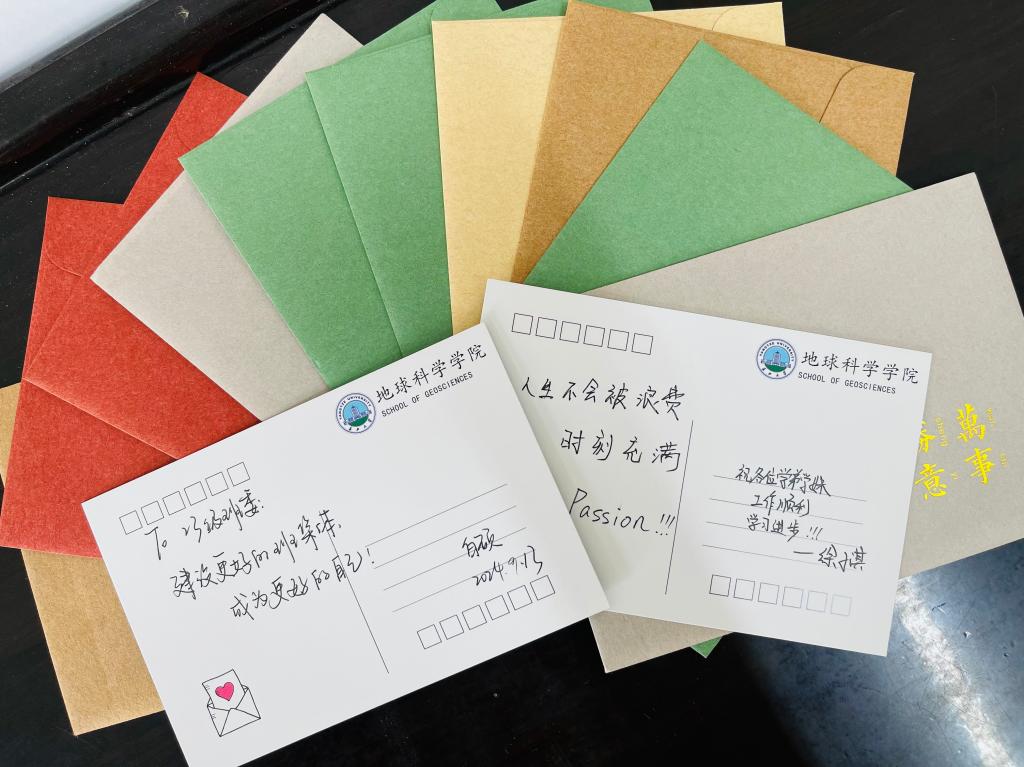 地球科学学院
SCHOOL OF GEOSCIENCES
To 23级班委:
建设更好的班集体,
成为更好的自己!
白硕
2024.9.13
地球科学学院
SCHOOL OF GEOSCIENCES
人生不会被浪费
时刻充满
Passion!!!
祝各位学弟学妹
工作顺利
学习进步!!!
萬事
意